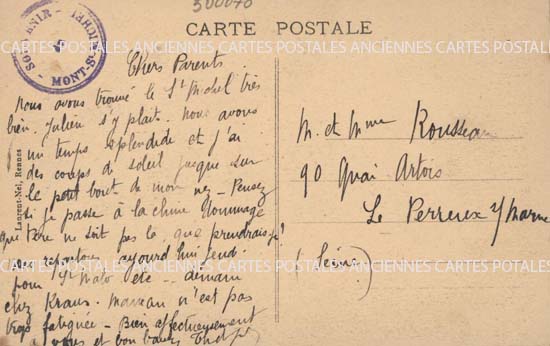 300070
CARTE POSTALE
CARTES POSTALES ANCIENNES CARTES POSTALES ANCIENNES CARTES POSTALES
SOUVENIR
MONT-ST-MICHEL
Laurent-Nel, Rennes
Chers Parents
Nous avons trouvé le St Michel très
bien. Julien s'y plait. Nous avons
un temps splendide et j'ai
des coups de soleil jusque sur
le petit bout de mon nez - Pensez
si je passe à la chine. Dommage
que Père ne soit pas là, que prendrais-je?
Nous repartons aujourd'hui lundi
pour St Malo etc - demain
chez Kraus. Maman n'est pas
trop fatiguée - Bien affectueusement
à vous et bon baisers
M. et Mme Rousseau
90 Quai Artois
Le Perreux s/ Marne
(Seine)